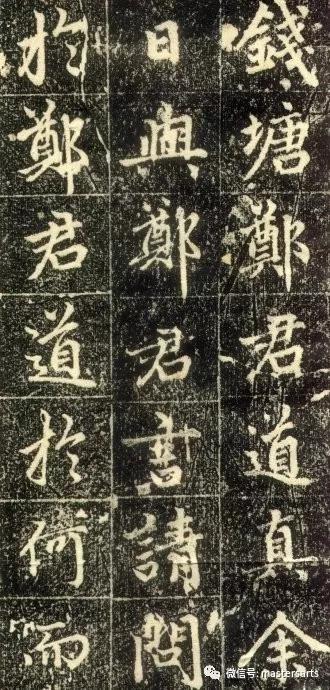 錢塘鄭君道真余
日與鄭君言請問
扵鄭君道於何而
微信号: mastersarts